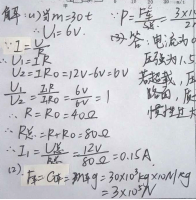 解:(1)当m=30t
U₁=6V.
∵I=U/R
U₁=IR
U₂=IR₀=12V-6V=6V
U₁/U₂=IR/IR₀=6V/6V=1
∴R=R₀=40Ω
∴R总=R+R₀=80Ω
∴I₁=U总/R总=12V/80Ω=0.15A
(2).
F压=G车=mg=30×10³kg×10N/kg
=3×10⁵N
∴P=F压/S
(3).答:电流为0
压强为1.5
若超载,压
路面,
惯性